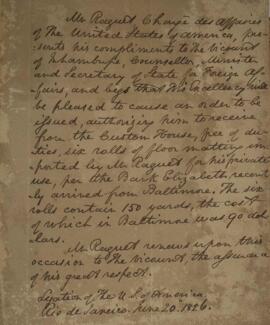 Mr Raguet, Chargé des Affaires
of The United States of America, pre-
sents his compliments to The Viscount
of Inhambupe, Counsellor, Minister
and Secretary of State for Foreign Af-
fairs, and begs that His Excellency will
be pleased to cause an order to be
issued, authorizing him to receive
from the Custom House, free of du-
ties, six rolls of floor matting im-
ported by Mr Raguet for his private
use, per the Bark Elizabeth recent-
ly arrived from Baltimore. The six
rolls contain 150 yards, the cost
of which in Baltimore was 90 dol
lars.
Mr. Raguet renews upon this
occasion to The Viscount, the assurance
of his great respect.
Legation of The U.S. of America
Rio de Janeiro. June 20. 1826.